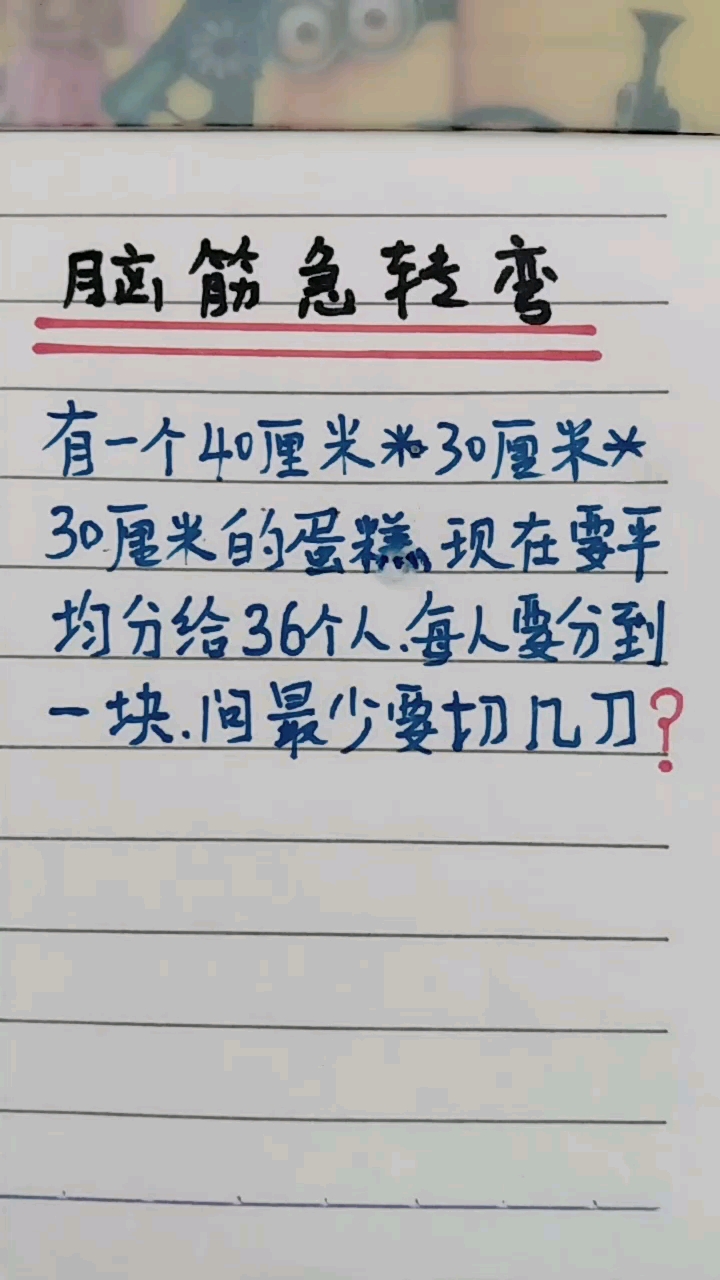 脑筋急转弯
有一个40厘米*30厘米*
30厘米的蛋糕,现在要平
均分给36个人.每人要分到
一块.问最少要切几刀?